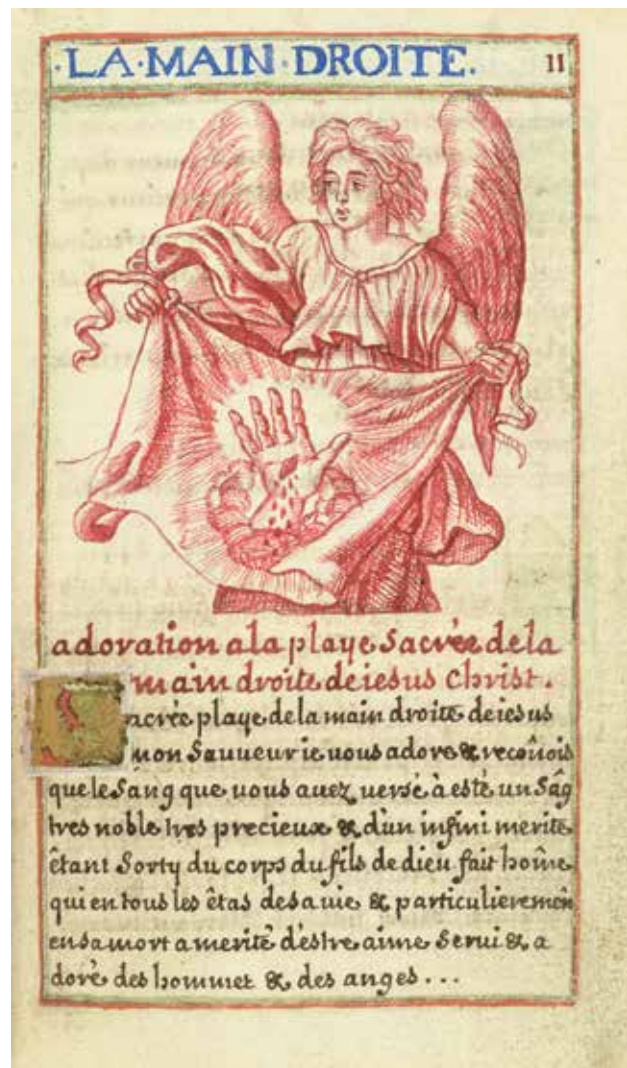 ·LA·MAIN·DROITE. 11
adoration a la playe Sacrée de la
main droite de iesus Christ.
Sacrée playe de la main droite de iesus
mon Sauueur ie uous adore & recoñois
que le Sang que uous auez uersé à esté un Sâg
tres noble tres precieux & d'un infini merite
êtant Sorty du corps du fils de dieu fait hom̃e
qui en tous les êtas de sa uie & particulieremên
en sa mort a merité d'estre aime Serui & a
doré des hommet & des anges...